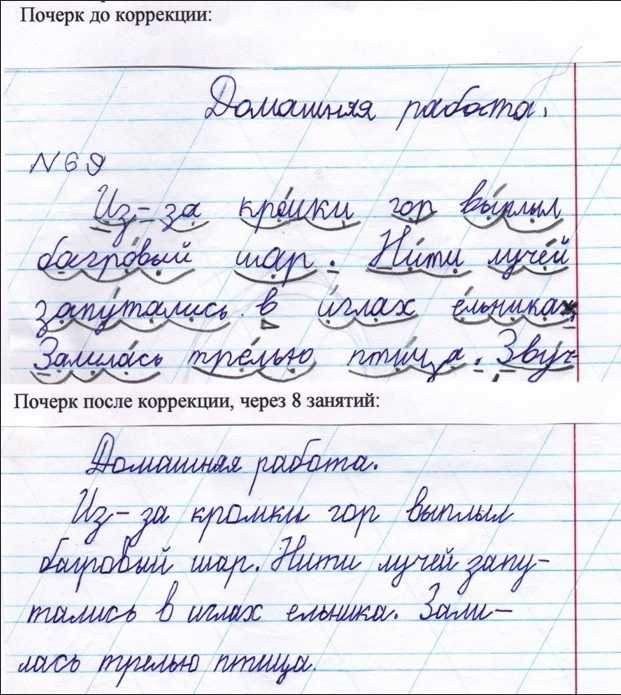 Почерк до коррекции:
Домашняя работа.
N 69
Из-за кромки гор выплыл
багровый шар. Нити лучей
запутались в иглах ельника.
Залилась трелью птица. Звуч-
Почерк после коррекции, через 8 занятий:
Домашняя работа.
Из-за кромки гор выплыл
багровый шар. Нити лучей запу-
тались в иглах ельника. Зали-
лась трелью птица.